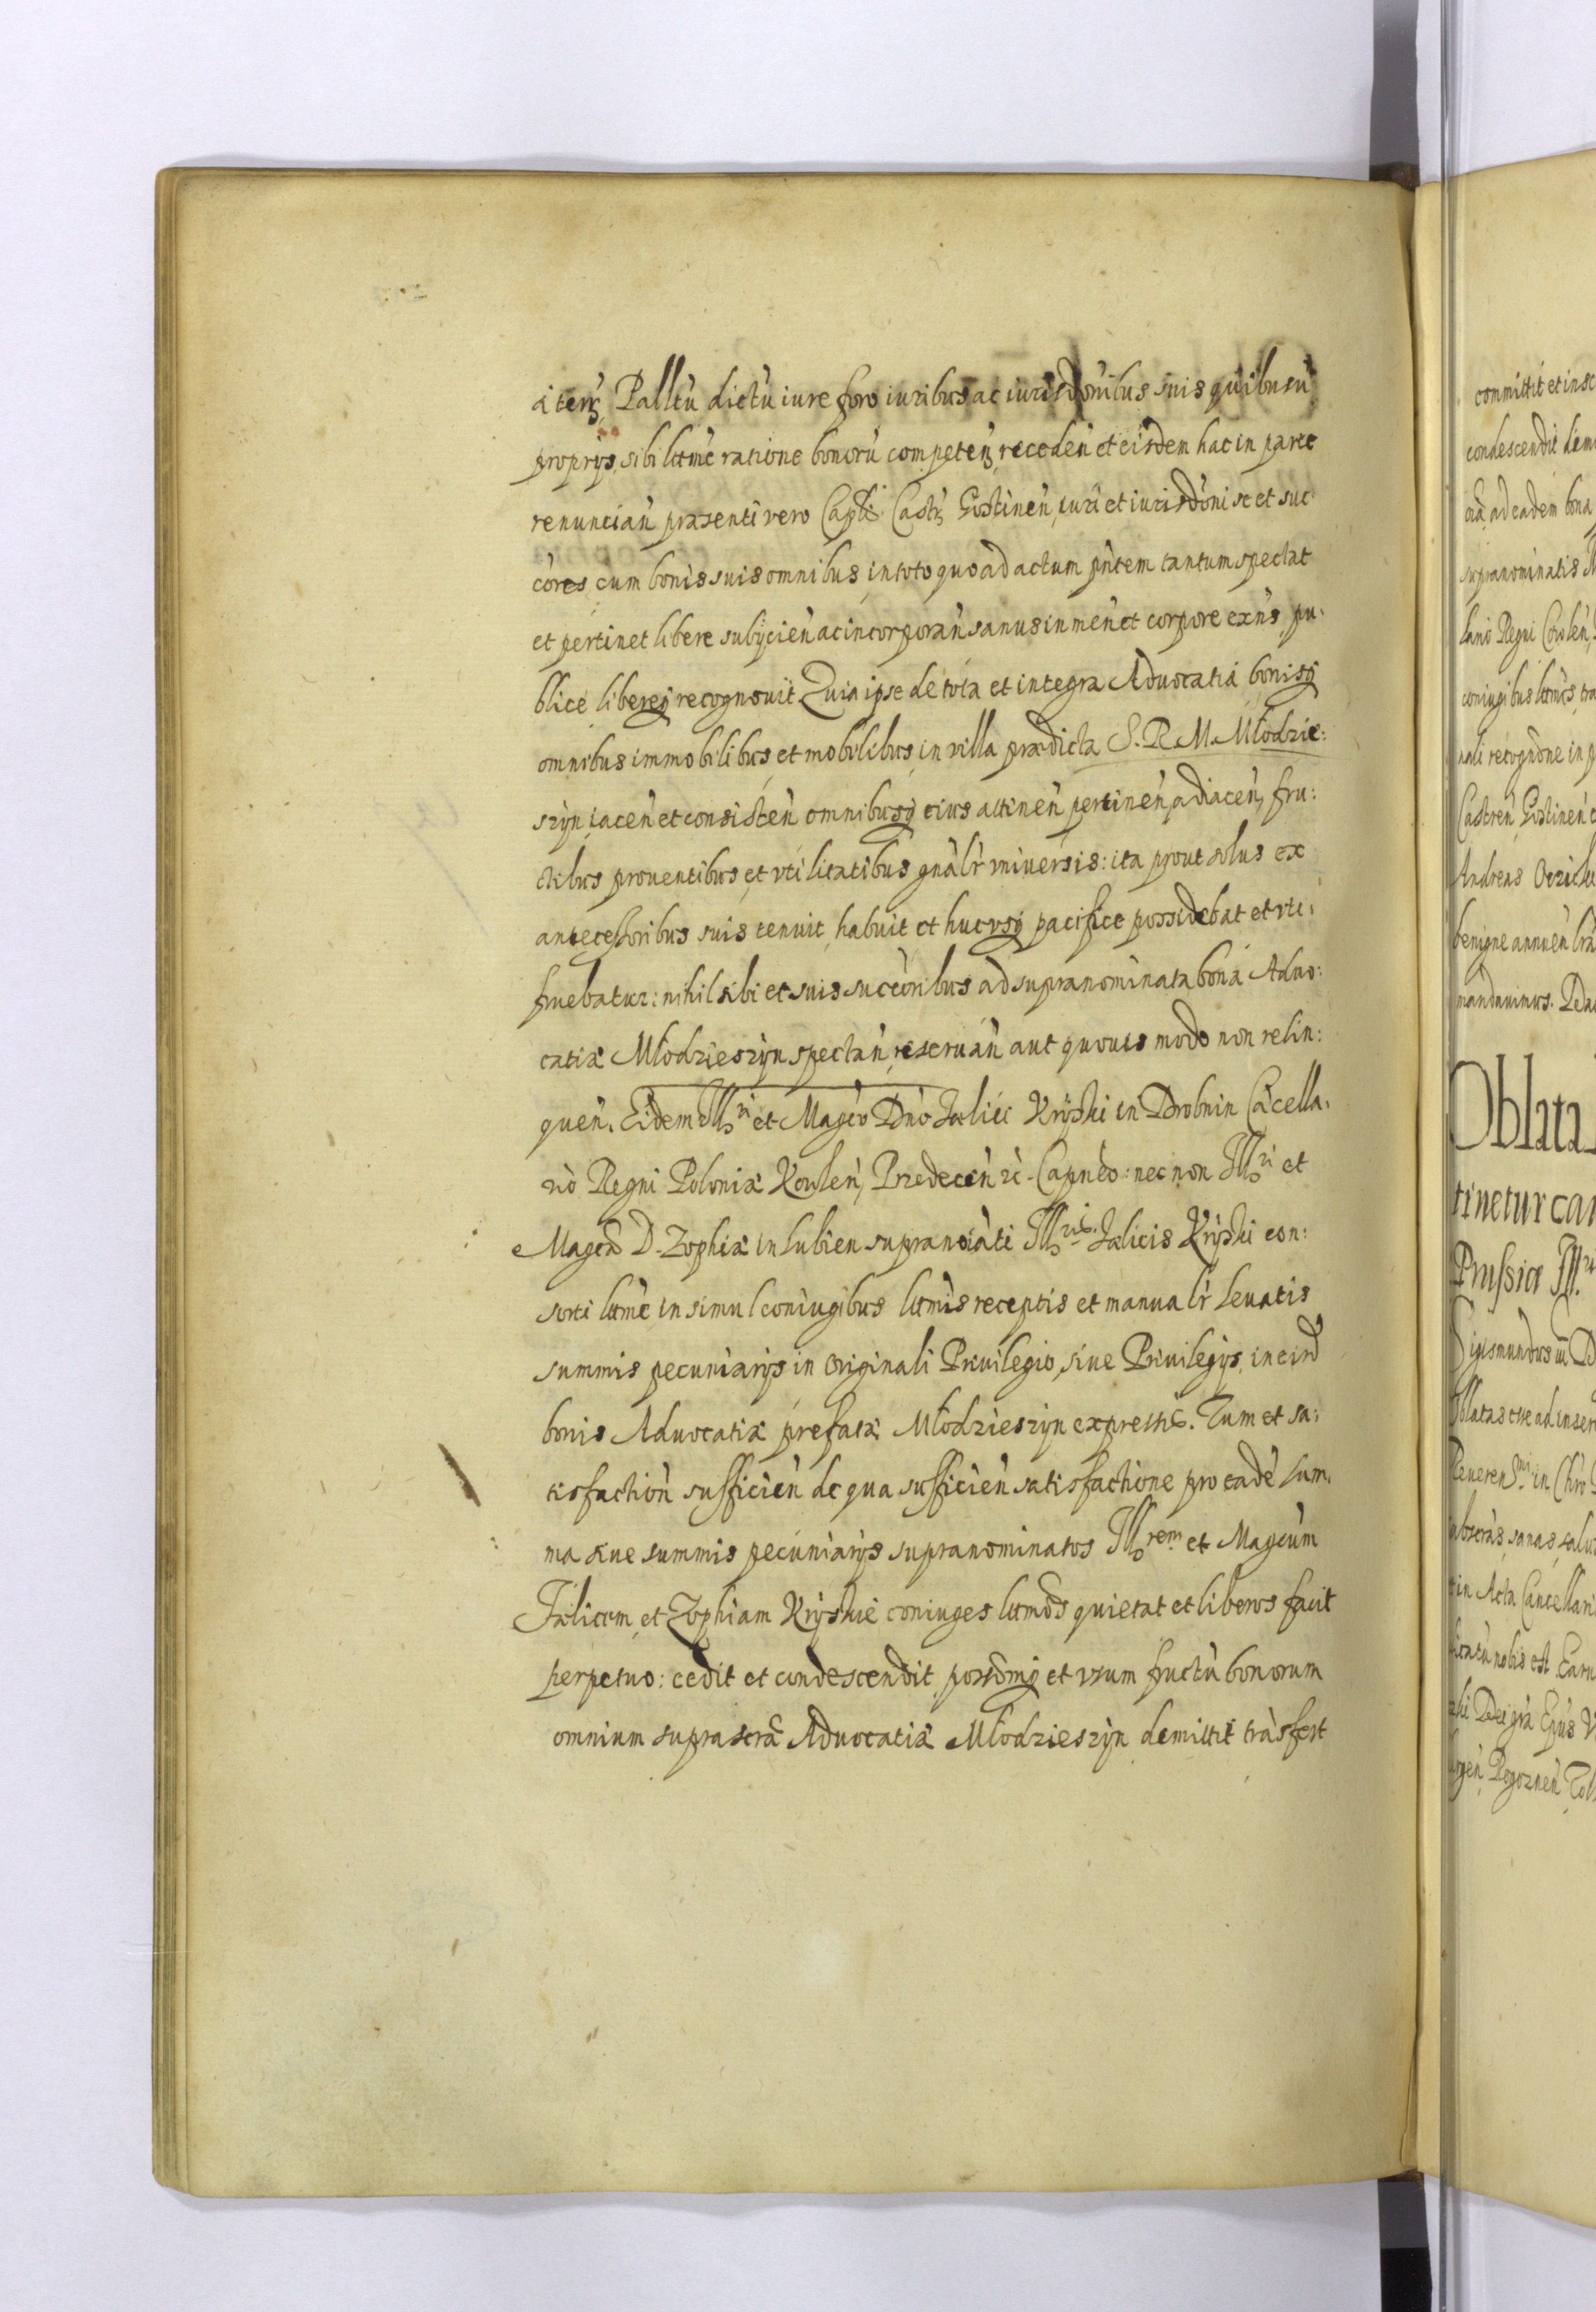 a terŋ Palltu̇ dictu̇ iure foro iuribus ac iurisdonibus suis quibusu̇
proprys sibi lttme ratione bonoru̇ competeŋ receden̾ et eisdem hac in parte
renuncian̾ præsenti vero Capli Castŋ Gostinen̾ iuri et iurisdoni se et suc
cores cum bonis suis omnibus in toto quo ad actum pn̾tem tantum spectat
et pertinet libere subÿcien̾ ac incorporan̾ sanus in men̾ et corpore exn̾s pu:
blice libereq recognouit Quia ipse de tota et integra Aduocatia bonisq
omnibus immobilibus et mobilibus in villa prædicta S. R. M. Młodzie:
szyn iacen̾ et consisten̾ omnibusq eius attinen̾ pertinen̾ adiacen̾ fru:
ctibus prouentibus et vtilitatibus gnalr vniuersis: ita prout solus ex
antecessoribus suis tenuit habuit et hucvsq pacifice possidebat et vti:
fruebatur: nihil sibi et suis succoribus ad supranominata bona Aduo:
catiæ Młodzieszyn spectan̾ reseruan̾ aut quouis modo non relin:
quen̾. Eidem Illri et Magco Dno Fælici Kryski in Drobnin Cacella:
rio Regni Poloniæ Kowlen̾, Przedecen̾ zc. Capneo: nec non Illri et
Magca D. Zophiæ in Lubien supranoiati Illris Fælicis Kryski con:
sorti lttme in simul coniugibus lttmis receptis et manualr leuatis
summis pecuniarys in originali Priuilegio, siue Priuilegys in eisd
bonis Aduocatiæ prefatæ Młodzieszyn expressis. Tum et sa:
tisfaction̾ sufficien̾ de qua sufficien̾ satisfactione pro eade sum:
ma siue summis pecuniarys supranominatos Illrem et Magcum
Fælicem et Zophiam Kryskie coniuges lttmos quietat et liberos facit
perpetuo: cedit et condescendit possomq et vsum fructu̇ bonorum
omnium suprascra Aduocatiæ Młodzieszyn demittit trasfert
committit et insc
condescendit
ad eadem bona
supranominatis
Regni
coniugibus lttmis tra
recognone in
Castren̾ Gostinen̾
Andreas
benigne annuen̾
mandauimus.
Oblata
tinetur
Prussiæ Ill.
Sigismundus III D
Oblatas esse ad
in Chro
sanas salu
in Acta Cancellari
nobis est Earu
Dei gra
Rogoznen̾